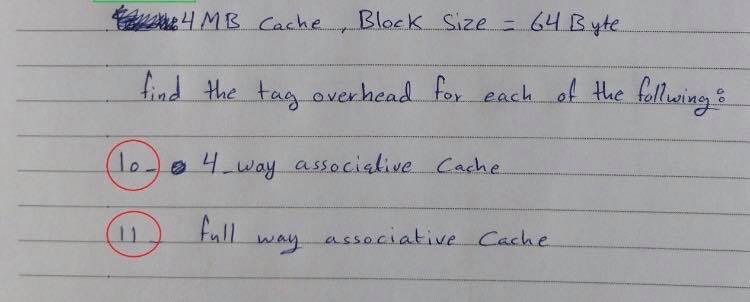 4 MB Cache, Block Size = 64 Byte
find the tag overhead for each of the follwing:
10- 4-way associative Cache
11- full way associative Cache